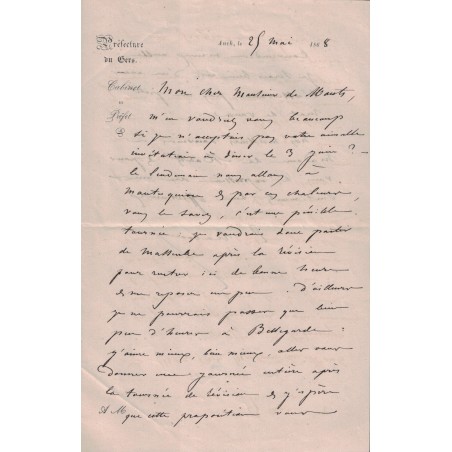 Préfecture
du Gers.
Auch, le 25 mai 1868
Cabinet
du
Préfet
Mon cher Monsieur de
m'en voudrez vous beaucoup
si je n'acceptais pas votre aimable
invitation à diner le 3 juin ? -
le lendemain nous allons à
Montesquiou & par ces chaleurs,
vous le savez, c'est une pénible
tournée je voudrais donc partir
de Masseube après la révision
pour rentrer ici de bonne heure
& me reposer un peu. D'ailleurs
je ne pourrais passer que bien
peu d'heures à Bellegarde :
j'aime mieux, bien mieux, aller vous
donner une journée entière après
la tournée de révision & j'espère
A M
que cette proposition vous